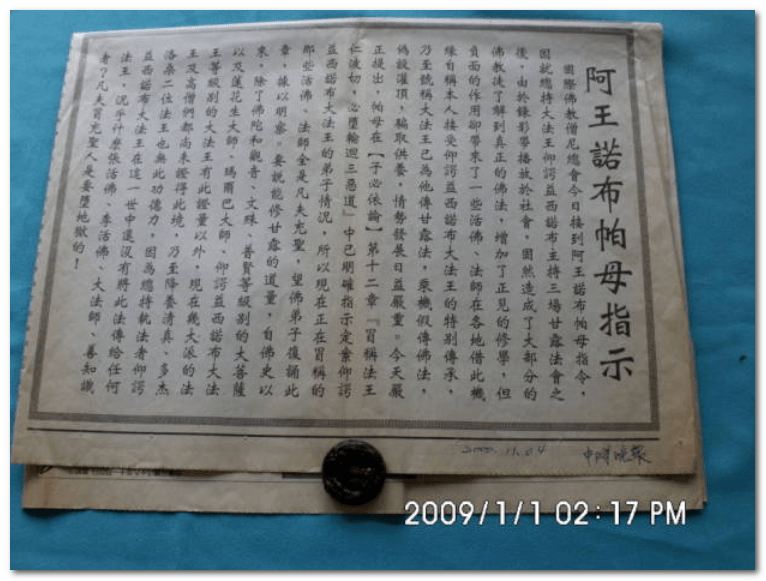 阿王諾布帕母指示
國際佛教僧尼總會今日接到阿王諾布帕母指令，
因就總持大法王仰諤益西諾布主持三場甘露法會之
後，由於錄影帶播放於社會，固然造成了大部分的
佛教徒了解到真正的佛法，增加了正見的修學，但
負面的作用卻帶來了一些活佛、法師在各地借此機
緣自稱本人接受仰諤益西諾布大法王的特別傳承，
乃至號稱大法王已為他傳甘露法，乘機假傳佛法，
偽設灌頂，騙取供養，情勢發展日益嚴重。今天嚴
正提出，帕母在【子必依論】第十二章「冒稱法王
仁波切，必墮輪迴三惡道」中已明確指示定案仰諤
益西諾布大法王的弟子情況，所以現在正在冒稱的
那些活佛、法師全是凡夫充聖，望佛弟子復誦此
章，據以明察。要說能修甘露的道量，自佛史以
來，除了佛陀和觀音、文殊、普賢等級別的大菩薩
以及蓮花生大師、瑪爾巴大師、仰諤益西諾布大法
王等級別的大法王有此證量以外，現在幾大派的法
王及高僧們都尚未證得此境，乃至降養清真、多杰
洛桑二位法王也無此功德力，因為總持執法者仰諤
益西諾布大法王在這一世中還沒有將此法傳給任何
法王，況乎什麼張活佛、李活佛、大法師、善知識
者？凡夫冒充聖人是要墮地獄的！
2000. 11. 04
中時晚報
2009/1/1 02:17 PM